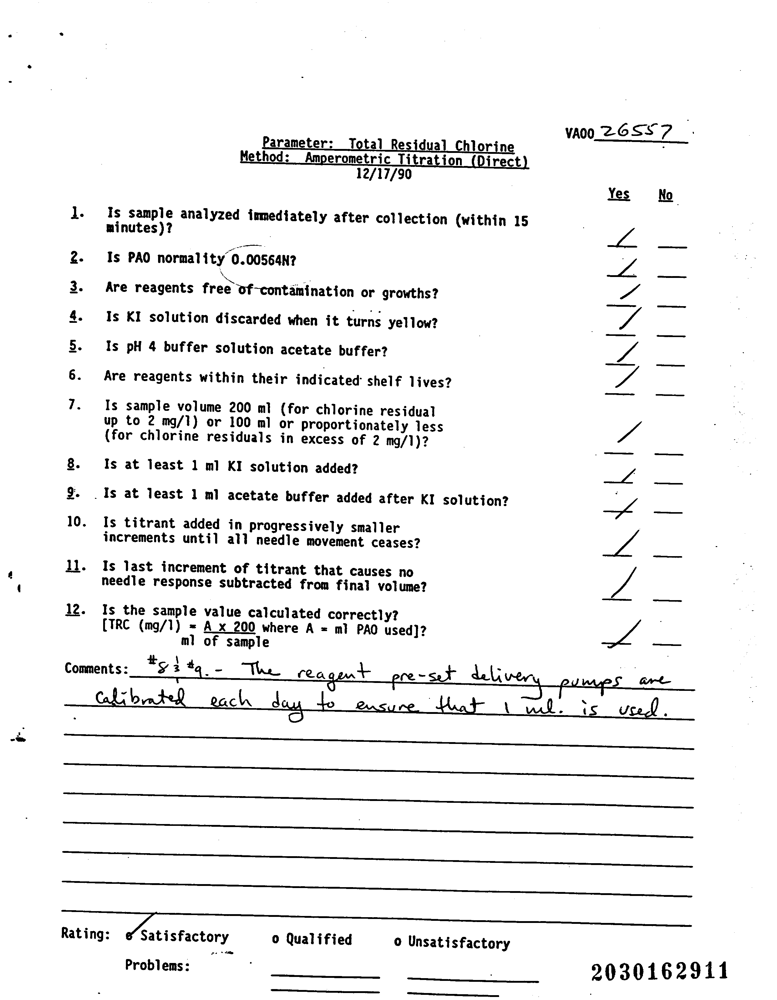 VA00 26557
Parameter: Total Residual Chlorine
Method: Amperometric Titration (Direct)
12/17/90
Yes No
1. Is sample analyzed immediately after collection (within 15
minutes)?
2. Is PAO normality 0.00564N?
3. Are reagents free of contamination or growths?
4. Is KI solution discarded when it turns yellow?
5. Is pH 4 buffer solution acetate buffer?
6. Are reagents within their indicated shelf lives?
7. Is sample volume 200 ml (for chlorine residual
up to 2 mg/l) or 100 ml or proportionately less
(for chlorine residuals in excess of 2 mg/l)?
8. Is at least 1 ml KI solution added?
9. Is at least 1 ml acetate buffer added after KI solution?
10. Is titrant added in progressively smaller
increments until all needle movement ceases?
11. Is last increment of titrant that causes no
needle response subtracted from final volume?
12. Is the sample value calculated correctly?
[TRC (mg/l) = A x 200 where A = ml PAO used]?
ml of sample
Comments: #8 & #9. - The reagent pre-set delivery pumps are
calibrated each day to ensure that 1 ml. is used.
Rating: o Satisfactory o Qualified o Unsatisfactory
Problems:
2030162911